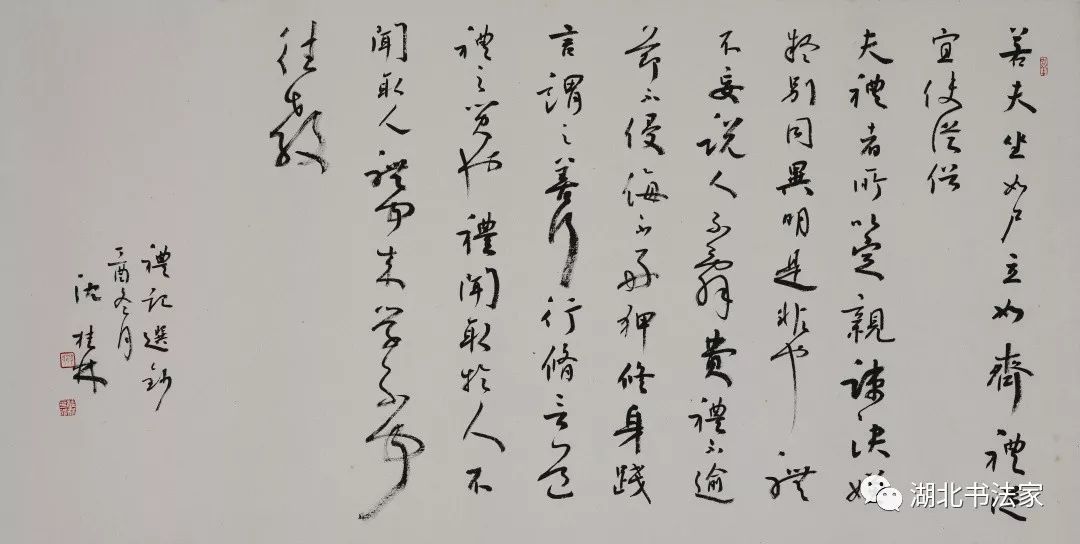 若夫坐如尸立如齊禮從
宜使從俗
夫禮者所以定親疎決嫌
疑別同異明是非也禮
不妄說人不辭費禮不逾
節不侵侮不好狎修身踐
言謂之善行行脩言道
禮之質也禮聞取於人不
聞取人禮聞來學不聞
往教
禮記選鈔
丁酉冬月
沈桂林
湖北书法家